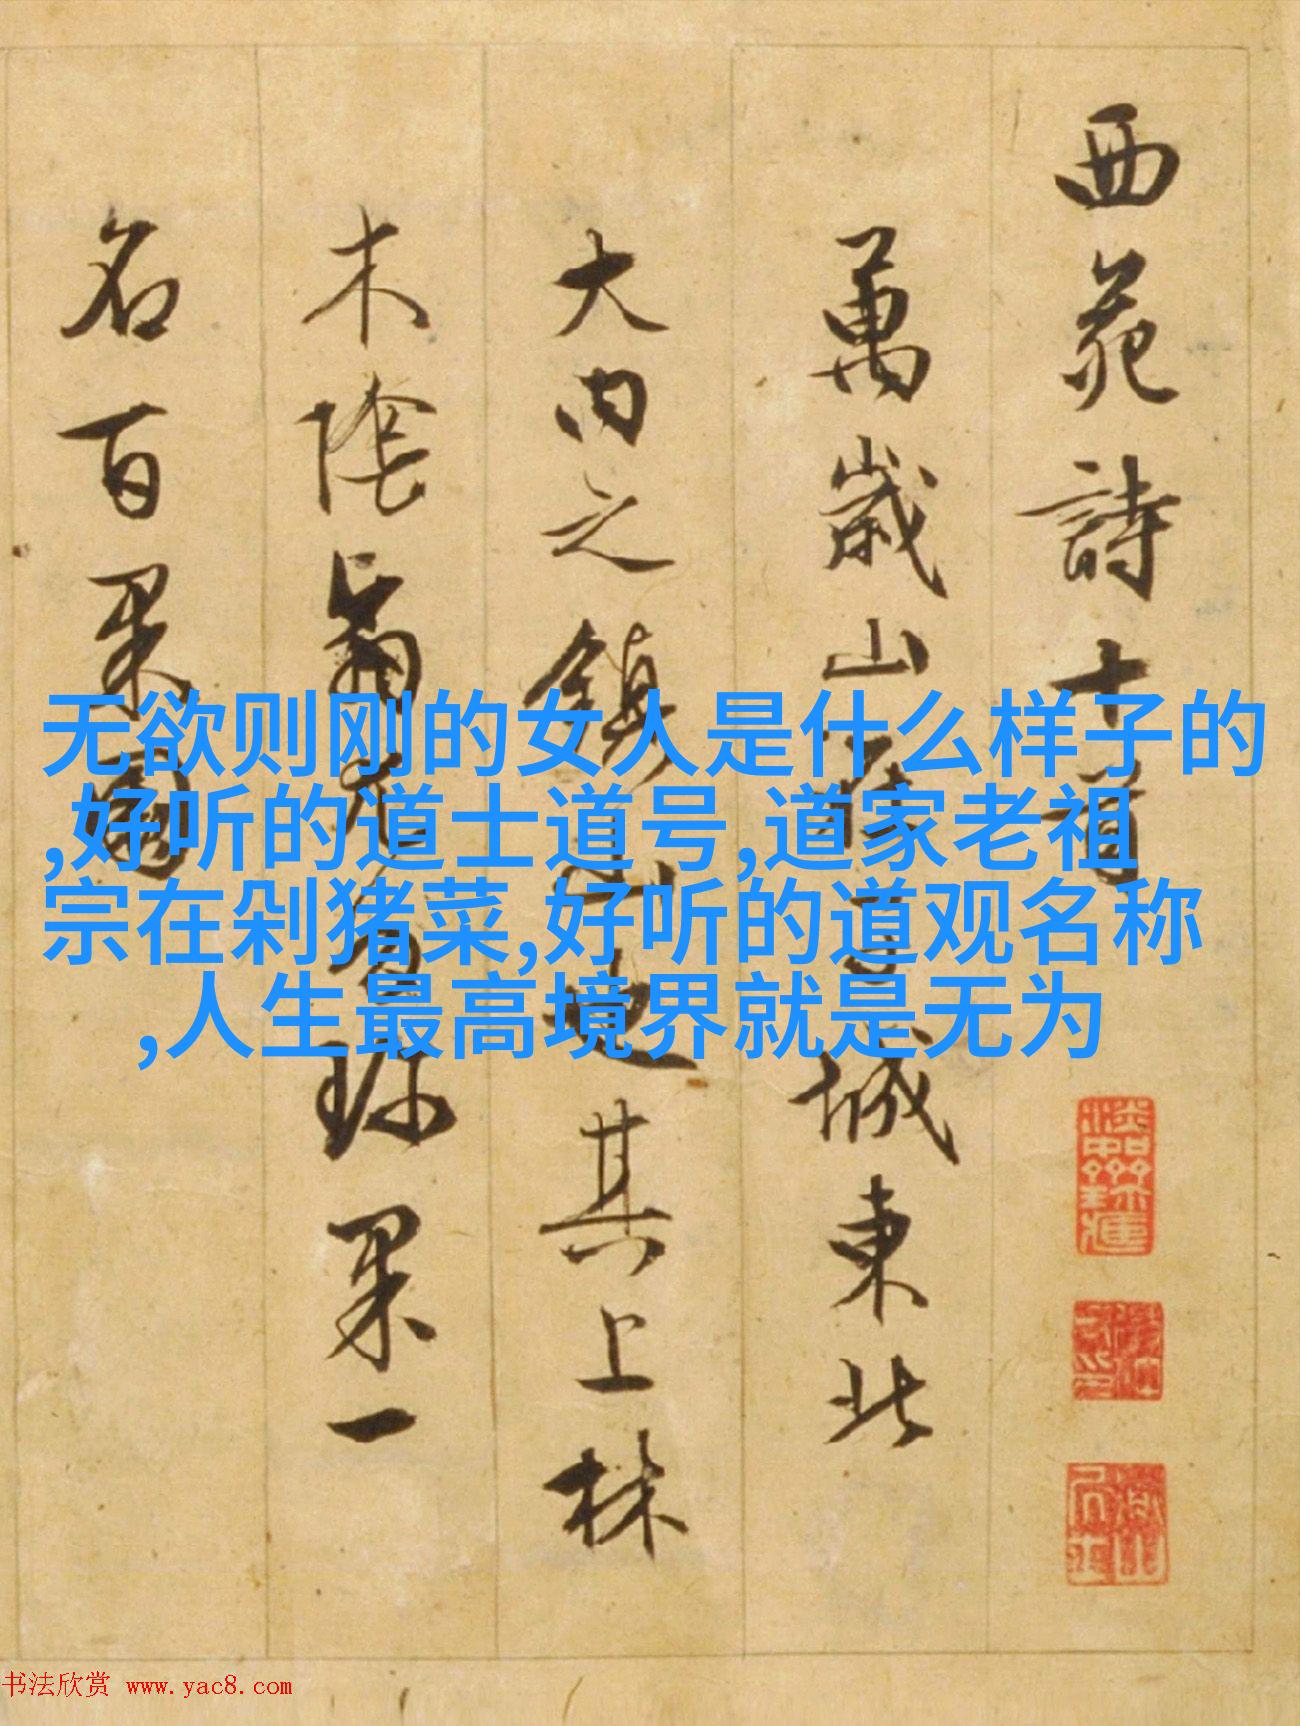 西苑詩十首
萬歲山在城東北
大内之鎮山也其上林
木陰翳尤多珍果一
名百果園
无欲则刚的女人是什么样子的
,好听的道士道号,道家老祖
宗在剁猪菜,好听的道观名称
,人生最高境界就是无为
书法欣赏 www.yac8.com